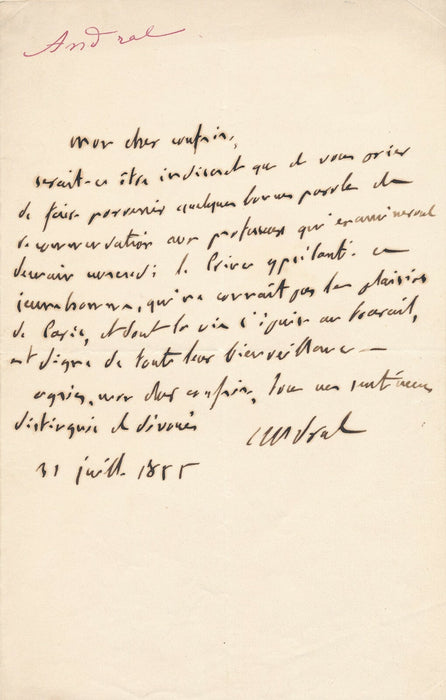 Andral
mon cher confrère,
serait-ce être indiscret que de vous prier
de faire parvenir quelques bonnes paroles de
recommandation aux professeurs qui examineront
demain mercredi le Prince ypsilanti. ce
jeune homme, qui ne connait pas les plaisirs
de Paris, et dont la vie s'épuise au travail,
est digne de toute leur bienveillance —
agréez, mon cher confrère, tous mes sentimens
distingués et dévoués
Andral
31 juill. 1855